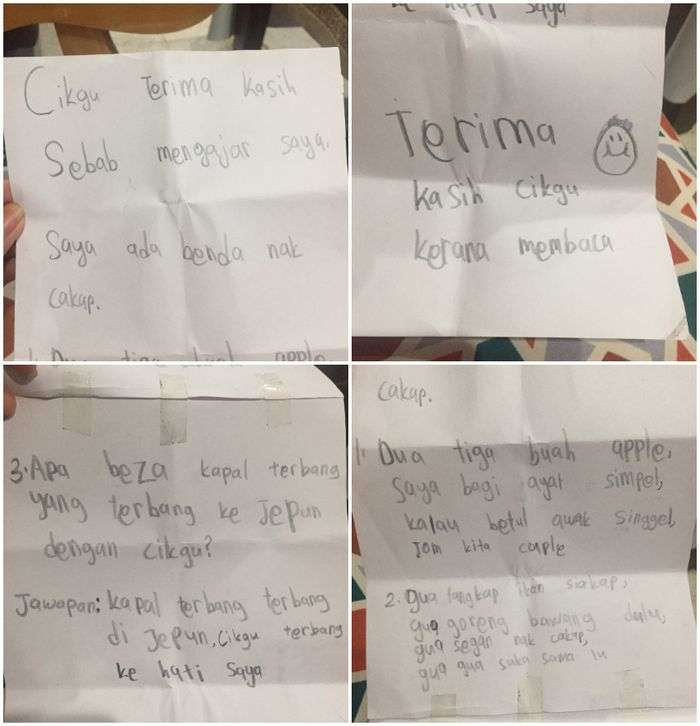 Cikgu Terima Kasih
Sebab mengajar saya.
Saya ada benda nak
cakap.
1. Dua tiga buah apple
ke hati saya
Terima
Kasih Cikgu
kerana membaca
3. Apa beza kapal terbang
yang terbang ke Jepun
dengan cikgu?
Jawapan: kapal terbang terbang
di Jepun, Cikgu terbang
ke hati saya
cakap.
1. Dua tiga buah apple,
Saya bagi ayat simpel,
kalau betul awak singgel,
Jom kita cuple
2. Gua tangkap ikan siakap,
gua goreng bawang dulu,
gua segan nak cakap,
gua gua suka sama lu